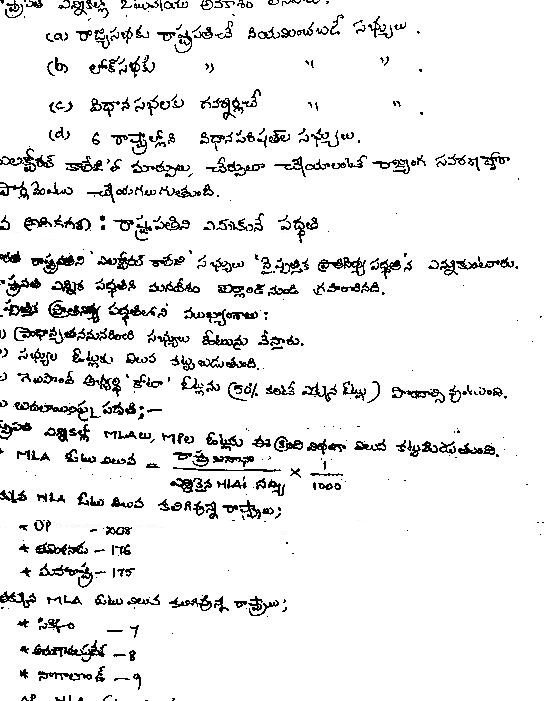 ఎన్నికల్లో ఓటువేయు అవకాశం లేనివారు.
(a) రాజ్యసభకు రాష్ట్రపతిచే నియమించబడే సభ్యులు.
(b) లోక్‌సభకు " " " .
(c) విధానసభలకు గవర్నర్లచే " " .
(d) 6 రాష్ట్రాల్లోని విధానపరిషత్ సభ్యులు.
కాలేజీ'లో మార్పులు, చేర్పులు చేయాలంటే రాజ్యాంగ సవరణ ద్వారా
పార్లమెంటు చేయగలుగుతుంది.
: రాష్ట్రపతిని ఎన్నుకునే పద్ధతి
రాష్ట్రపతిని 'ఎలక్టోరల్ కాలేజి' సభ్యులు 'నైష్పత్తిక ప్రాతినిధ్య పద్ధతి'న ఎన్నుకుంటారు.
ఎన్నిక పద్ధతిని మనదేశం ఐర్లాండ్ నుండి గ్రహించినది.
ప్రాతినిధ్య పద్ధతిలోని ముఖ్యాంశాలు:
ప్రాధాన్యతననుసరించి సభ్యులు ఓటును వేస్తారు.
సభ్యుల ఓట్లకు విలువ కట్టబడుతుంది.
గెలుపొందే అభ్యర్థి 'కోటా' ఓట్లను (50% కంటే ఎక్కువ ఓట్లు) పొందాల్సి వుంటుంది.
పద్ధతి :-
ఎన్నికల్లో MLAలు, MPల ఓట్లకు ఈ క్రింది విధంగా విలువ కట్టబడుతుంది.
* MLA ఓటు విలువ = రాష్ట్ర జనాభా / ఎన్నికైన MLAల సంఖ్య × 1/1000
MLA ఓటు విలువ కలిగివున్న రాష్ట్రాలు;
* UP - 208
* తమిళనాడు - 176
* మహారాష్ట్ర - 175
MLA ఓటు విలువ కలిగివున్న రాష్ట్రాలు;
* సిక్కిం - 7
* అరుణాచల్‌ప్రదేశ్ - 8
* నాగాలాండ్ - 9